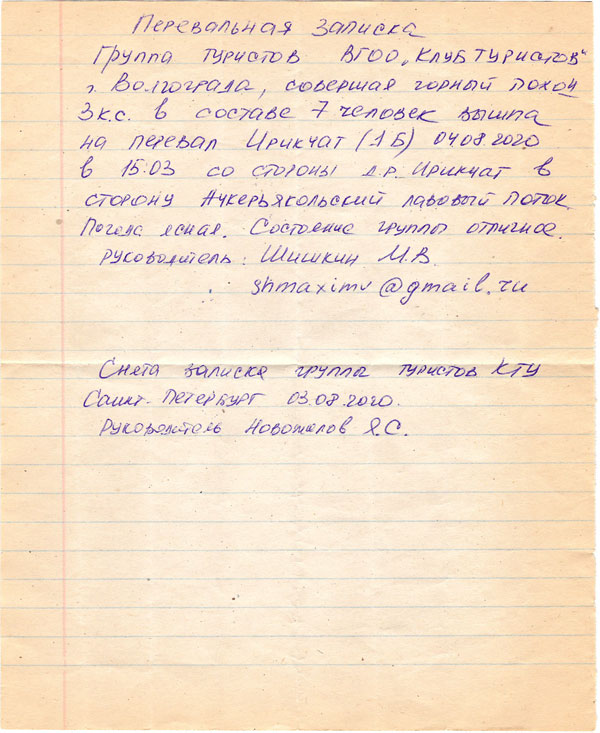 Перевальная записка
Группа туристов ВГОО „Клуб туристов"
г. Волгограда, совершая горный поход
3 к.с. в составе 7 человек вышла
на перевал Ирикчат (1Б) 04.08.2020
в 15.03 со стороны д.р. Ирикчат в
сторону Ачкерьякольский лавовый поток
Погода ясная. Состояние группы отличное.
руководитель: Шишкин М.В.
shmaximv@gmail.ru
Снята записка группы туристов КТУ
Санкт-Петербург 03.08.2020.
Руководитель Новожилов Я.С.